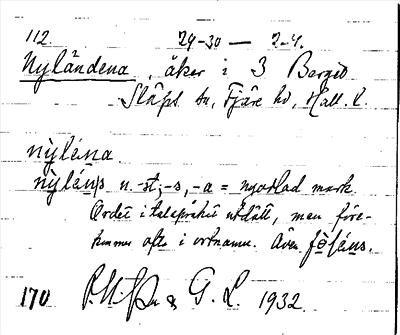 112 29-30 — 2-4.
Nyländena, åker i 3 Berged
Släps sn, Fjäre hd, Hall. l.
nỳléna
nỳléns n. -st; -s, -a = nyodlad mark
Ordet i talspråket utdött, men före-
kommer ofta i ortnamn. Även
170 & G. L. 1932.